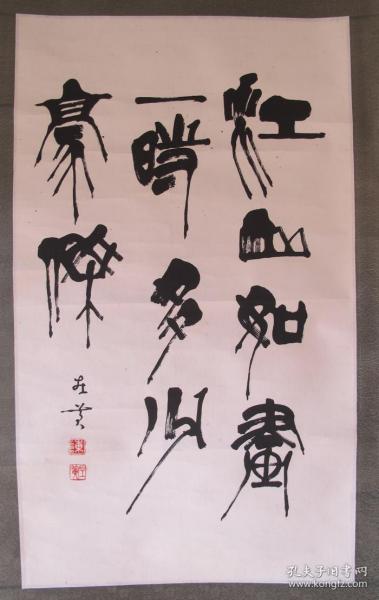 江山如畫
一時多少
豪傑
孔夫子旧书网
www.kongfz.com